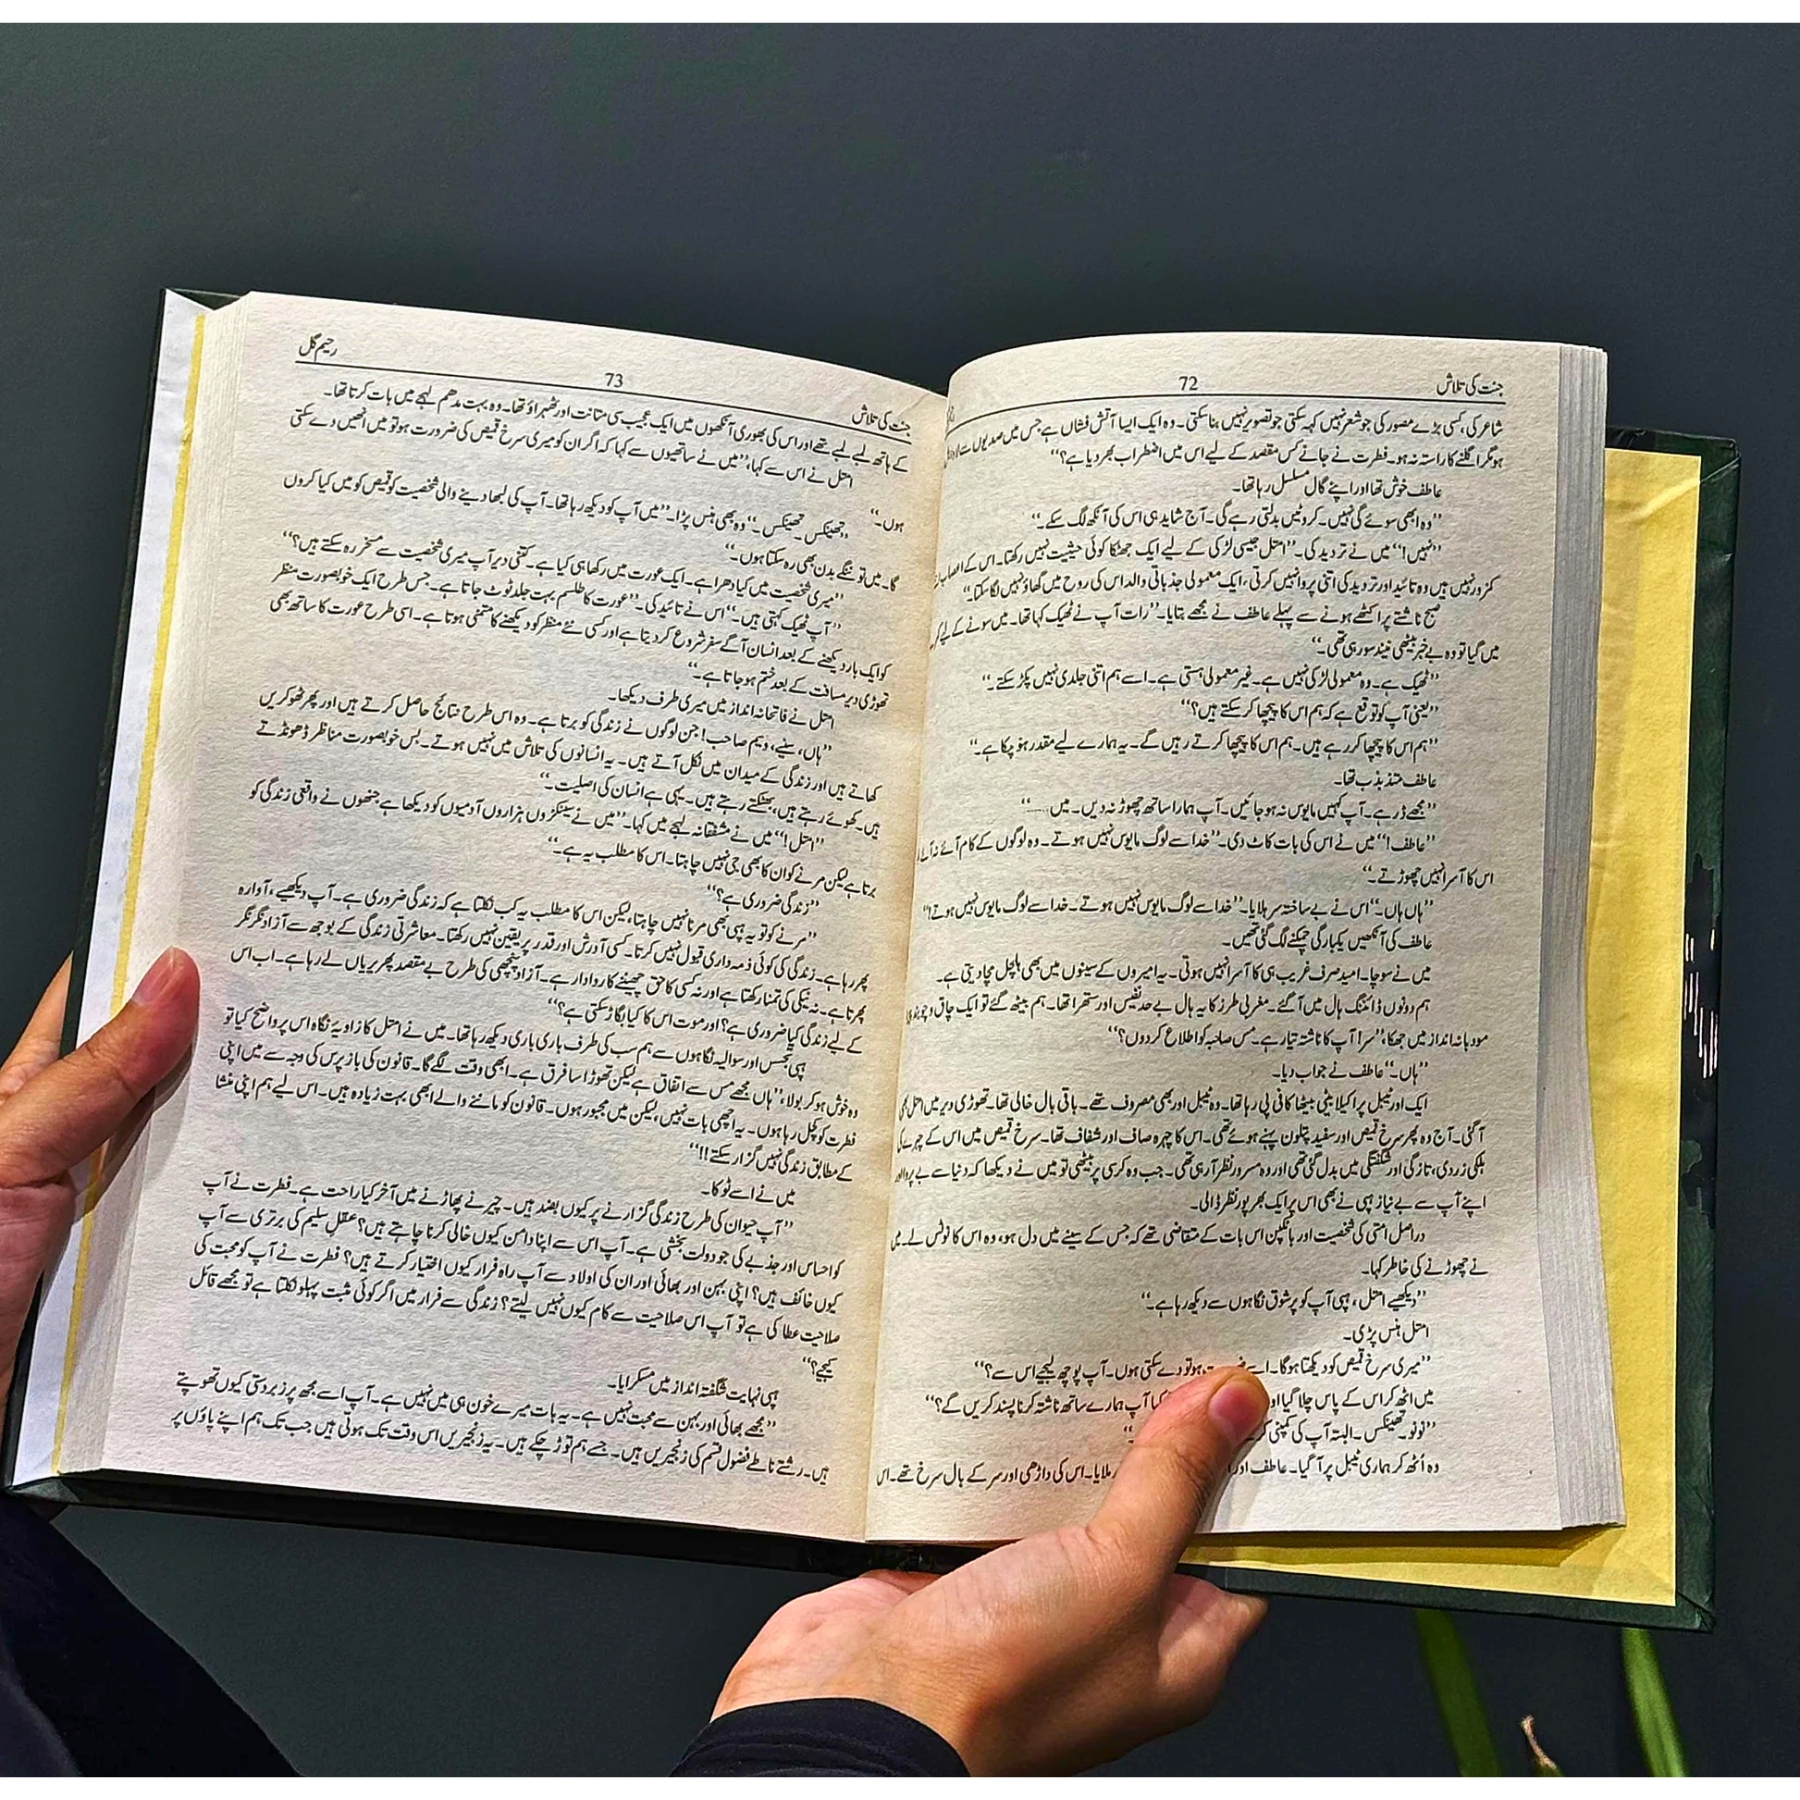 جنت کی تلاش
72
شاعر کی، کسی بڑے مصور کی جو شعر نہیں کہہ سکتی جو تصویر نہیں بنا سکتی۔ وہ ایک ایسا آتش فشاں ہے جس میں صدیوں سے لاوا
ہو مگر اگلنے کا راستہ نہ ہو۔ فطرت نے جانے کس مقصد کے لیے اس میں اضطراب بھر دیا ہے؟‘‘
عاطف خوش تھا اور اپنے گال مسلسل رہا تھا۔
’’وہ ابھی سوئے گی نہیں۔ کروٹیں بدلتی رہے گی۔ آج شاید ہی اس کی آنکھ لگ سکے۔‘‘
’’نہیں!‘‘ میں نے تردید کی۔ ’’امتل جیسی لڑکی کے لیے ایک جھٹکا کوئی حیثیت نہیں رکھتا۔ اس کے اعصاب
کمزور نہیں ہیں وہ تائید اور تردید کی اتنی پروا نہیں کرتی، ایک معمولی جذباتی والد اس کی روح میں گھاؤ نہیں لگا سکتا۔‘‘
صبح ناشتے پر اکٹھے ہونے سے پہلے عاطف نے مجھے بتایا۔ ’’رات آپ نے ٹھیک کہا تھا۔ میں سونے کے لیے
میں گیا تو وہ بے خبر بیٹھی نیند سو رہی تھی۔‘‘
’’ٹھیک ہے۔ وہ معمولی لڑکی نہیں ہے۔ غیر معمولی ہستی ہے۔ اسے ہم اتنی جلدی نہیں پکڑ سکتے۔‘‘
’’یعنی آپ کو توقع ہے کہ ہم اس کا پیچھا کر سکتے ہیں؟‘‘
’’ہم اس کا پیچھا کر رہے ہیں۔ ہم اس کا پیچھا کرتے رہیں گے۔ یہ ہمارے لیے مقدر ہو چکا ہے۔‘‘
عاطف متذبذب تھا۔
’’مجھے ڈر ہے۔ آپ کہیں مایوس نہ ہو جائیں۔ آپ ہمارا ساتھ چھوڑ نہ دیں۔ میں......‘‘
’’عاطف!‘‘ میں نے اس کی بات کاٹ دی۔ ’’خدا سے لوگ مایوس نہیں ہوتے۔ وہ لوگوں کے کام آئے نہ آئے
اس کا آسرا نہیں چھوڑتے۔‘‘
’’ہاں ہاں۔‘‘ اس نے بے ساختہ سر ہلایا۔ ’’خدا سے لوگ مایوس نہیں ہوتے۔ خدا سے لوگ مایوس نہیں ہوتے!‘‘
عاطف کی آنکھیں یکبارگی چمکنے لگ گئی تھیں۔
میں نے سوچا۔ امید صرف غریب ہی کا آسرا نہیں ہوتی۔ یہ امیروں کے سینوں میں بھی ہلچل مچا دیتی ہے۔
ہم دونوں ڈائننگ ہال میں آ گئے۔ مغربی طرز کا یہ ہال بے حد نفیس اور ستھرا تھا۔ ہم بیٹھ گئے تو ایک چاق و چوبند
مودبانہ انداز میں جھکا، ’’سر! آپ کا ناشتہ تیار ہے۔ مس صاحبہ کو اطلاع کر دوں؟‘‘
’’ہاں۔‘‘ عاطف نے جواب دیا۔
ایک اور ٹیبل پر اکیلا ہیپی بیٹھا کافی پی رہا تھا۔ دو ٹیبل اور بھی مصروف تھے۔ باقی ہال خالی تھا۔ تھوڑی دیر میں امتل بھی
آ گئی۔ آج وہ پھر سرخ قمیص اور سفید پتلون پہنے ہوئے تھی۔ اس کا چہرہ صاف اور شفاف تھا۔ سرخ قمیص میں اس کے چہرے کی
ہلکی زردی، تازگی اور شگفتگی میں بدل گئی تھی اور وہ مسرور نظر آ رہی تھی۔ جب وہ کرسی پر بیٹھی تو میں نے دیکھا کہ دنیا سے بے پروا اور
اپنے آپ سے بے نیاز ہپی نے بھی اس پر ایک بھرپور نظر ڈالی۔
دراصل امتی کی شخصیت اور بانکپن اس بات کے متقاضی تھے کہ جس کے سینے میں دل ہو، وہ اس کا نوٹس لے۔ میں
نے چھوڑنے کی خاطر کہا۔
’’دیکھیے امتل، ہپی آپ کو پرشوق نگاہوں سے دیکھ رہا ہے۔‘‘
امتل ہنس پڑی۔
’’میری سرخ قمیص کو دیکھتا ہوگا۔ اسے ہو تو دے سکتی ہوں۔ آپ پوچھ لیجیے اس سے؟‘‘
میں اٹھ کر اس کے پاس چلا گیا اور کیا آپ ہمارے ساتھ ناشتہ کرنا پسند کریں گے؟‘‘
’’نو نو۔ تھینکس۔ البتہ آپ کی کمپنی
وہ اُٹھ کر ہماری ٹیبل پر آ گیا۔ عاطف اور ملایا۔ اس کی داڑھی اور سر کے بال سرخ تھے۔ اس
جنت کی تلاش
73
رحیم گل
کے ہاتھ لمبے لمبے تھے اور اس کی بھوری آنکھوں میں ایک عجیب سی متانت اور ٹھہراؤ تھا۔ وہ بہت مدھم لہجے میں بات کرتا تھا۔
امتل نے اس سے کہا، ’’میں نے ساتھیوں سے کہا کہ اگر ان کو میری سرخ قمیص کی ضرورت ہو تو میں انھیں دے سکتی
ہوں۔‘‘
’’تھینکس۔ تھینکس۔‘‘ وہ بھی ہنس پڑا۔ ’’میں آپ کو دیکھ رہا تھا۔ آپ کی لبھا دینے والی شخصیت کو قمیص کو میں کیا کروں
گا۔ میں تو ننگے بدن بھی رہ سکتا ہوں۔‘‘
’’میری شخصیت میں کیا دھرا ہے۔ ایک عورت میں رکھا ہی کیا ہے۔ کتنی دیر آپ میری شخصیت سے مسخر رہ سکتے ہیں؟‘‘
’’آپ ٹھیک کہتی ہیں۔‘‘ اس نے تائید کی۔ ’’عورت کا طلسم بہت جلد ٹوٹ جاتا ہے۔ جس طرح ایک خوبصورت منظر
کو ایک بار دیکھنے کے بعد انسان آگے سفر شروع کر دیتا ہے اور کسی نئے منظر کو دیکھنے کا متمنی ہوتا ہے۔ اسی طرح عورت کا ساتھ بھی
تھوڑی دیر مسافت کے بعد ختم ہو جاتا ہے۔‘‘
امتل نے فاتحانہ انداز میں میری طرف دیکھا۔
’’ہاں، سنیے، وسیم صاحب! جن لوگوں نے زندگی کو برتا ہے۔ وہ اس طرح نتائج حاصل کرتے ہیں اور پھر ٹھوکریں
کھاتے ہیں اور زندگی کے میدان میں نکل آتے ہیں۔ یہ انسانوں کی تلاش میں نہیں ہوتے۔ بس خوبصورت مناظر ڈھونڈتے
ہیں۔ کھوئے رہتے ہیں، بھٹکتے رہتے ہیں۔ یہی ہے انسان کی اصلیت۔‘‘
’’امتل!‘‘ میں نے مشفقانہ لہجے میں کہا۔ ’’میں نے سینکڑوں ہزاروں آدمیوں کو دیکھا ہے جنھوں نے واقعی زندگی کو
برتا ہے لیکن مرنے کو ان کا بھی جی نہیں چاہتا۔ اس کا مطلب یہ ہے۔‘‘
’’زندگی ضروری ہے؟‘‘
’’مرنے کو تو یہ ہپی بھی مرنا نہیں چاہتا، لیکن اس کا مطلب یہ کب نکلتا ہے کہ زندگی ضروری ہے۔ آپ دیکھیے، آوارہ
پھر رہا ہے۔ زندگی کی کوئی ذمہ داری قبول نہیں کرتا۔ کسی آدرش اور قدر پر یقین نہیں رکھتا۔ معاشرتی زندگی کے بوجھ سے آزاد نگر نگر
پھرتا ہے۔ نہ نیکی کی تمنا رکھتا ہے اور نہ کسی کا حق چھیننے کا روادار ہے۔ آزاد پنچھی کی طرح بے مقصد پھریریاں لے رہا ہے۔ اب اس
کے لیے زندگی کیا ضروری ہے؟ اور موت اس کا کیا بگاڑ سکتی ہے؟‘‘
ہپی تجسس اور سوالیہ نگاہوں سے ہم سب کی طرف باری باری دیکھ رہا تھا۔ میں نے امتل کا زاویۂ نگاہ اس پر واضح کیا تو
وہ خوش ہو کر بولا، ’’ہاں مجھے مس سے اتفاق ہے لیکن تھوڑا سا فرق ہے۔ ابھی وقت لگے گا۔ قانون کی باز پرس کی وجہ سے میں اپنی
فطرت کو کچل رہا ہوں۔ یہ اچھی بات نہیں، لیکن میں مجبور ہوں۔ قانون کو ماننے والے ابھی بہت زیادہ ہیں۔ اس لیے ہم اپنی منشا
کے مطابق زندگی نہیں گزار سکتے!!‘‘
میں نے اسے ٹوکا۔
’’آپ حیوان کی طرح زندگی گزارنے پر کیوں بضد ہیں۔ چیرنے پھاڑنے میں آخر کیا راحت ہے۔ فطرت نے آپ
کو احساس اور جذبے کی جو دولت بخشی ہے۔ آپ اس سے اپنا دامن کیوں خالی کرنا چاہتے ہیں؟ عقلِ سلیم کی برتری سے آپ
کیوں خائف ہیں؟ اپنی بہن اور بھائی اور ان کی اولاد سے آپ راہ فرار کیوں اختیار کرتے ہیں؟ فطرت نے آپ کو محبت کی
صلاحیت عطا کی ہے تو آپ اس صلاحیت سے کام کیوں نہیں لیتے؟ زندگی سے فرار میں اگر کوئی مثبت پہلو نکلتا ہے تو مجھے قائل
کیجیے؟‘‘
ہپی نہایت شگفتہ انداز میں مسکرایا۔
’’مجھے بھائی اور بہن سے محبت نہیں ہے۔ یہ بات میرے خون ہی میں نہیں ہے۔ آپ اسے مجھ پر زبردستی کیوں تھوپتے
ہیں۔ رشتے ناطے فضول قسم کی زنجیریں ہیں۔ جسے ہم توڑ چکے ہیں۔ یہ زنجیریں اس وقت تک ہوتی ہیں جب تک ہم اپنے پاؤں پر